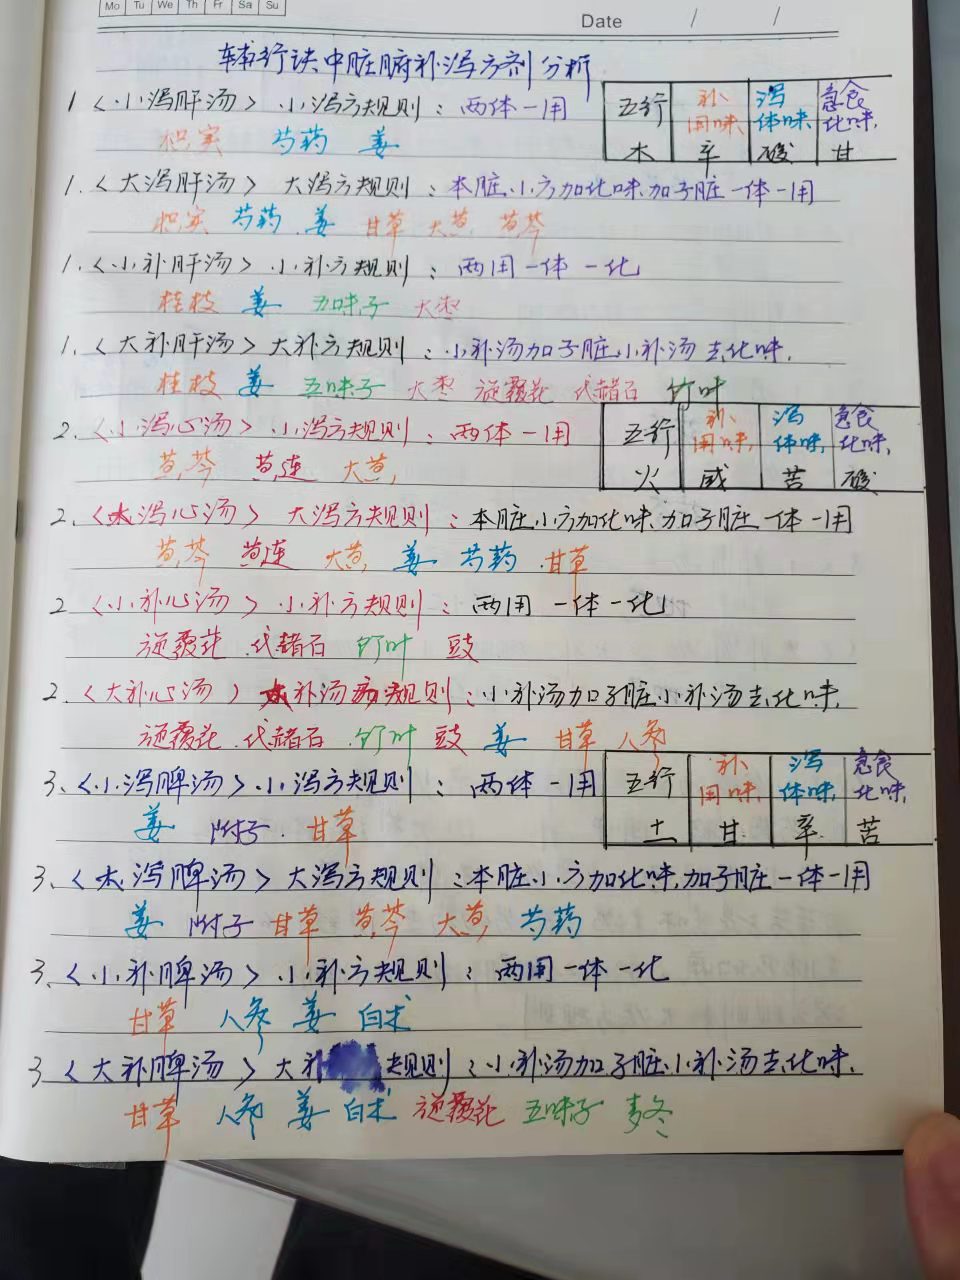 Mo Tu We Th Fr Sa Su
Date / /
辅行诀中脏腑补泻方剂分析
1〈小泻肝汤〉小泻方规则：两体一用
枳实 芍药 姜
五行 补用味 泻体味 急食化味
木 辛 酸 甘
1.〈大泻肝汤〉大泻方规则：本脏小方加化味加子脏一体一用
枳实 芍药 姜 甘草 大黄 黄芩
1.〈小补肝汤〉小补方规则：两用一体一化
桂枝 姜 五味子 大枣
1.〈大补肝汤〉大补方规则：小补汤加子脏小补汤去化味.
桂枝 姜 五味子 大枣 旋覆花 代赭石 竹叶
2.〈小泻心汤〉小泻方规则：两体一用
黄芩 黄连 大黄
五行 补用味 泻体味 急食化味
火 咸 苦 酸
2.〈大泻心汤〉大泻方规则：本脏小方加化味加子脏一体一用
黄芩 黄连 大黄 姜 芍药 甘草
2〈小补心汤〉小补方规则：两用一体一化
旋覆花 代赭石 竹叶 豉
2.〈大补心汤〉补汤方规则：小补汤加子脏小补汤去化味.
旋覆花 代赭石 竹叶 豉 姜 甘草 人参
3、〈小泻脾汤〉小泻方规则：两体一用
姜 附子 甘草
五行 补用味 泻体味 急食化味
土 甘 辛 苦
3.〈大泻脾汤〉大泻方规则：本脏小方加化味,加子脏一体一用
姜 附子 甘草 黄芩 大黄 芍药
3.〈小补脾汤〉小补方规则：两用一体一化
甘草 人参 姜 白术
3〈大补脾汤〉大补规则：小补汤加子脏小补汤去化味.
甘草 人参 姜 白术 旋覆花 五味子 麦冬